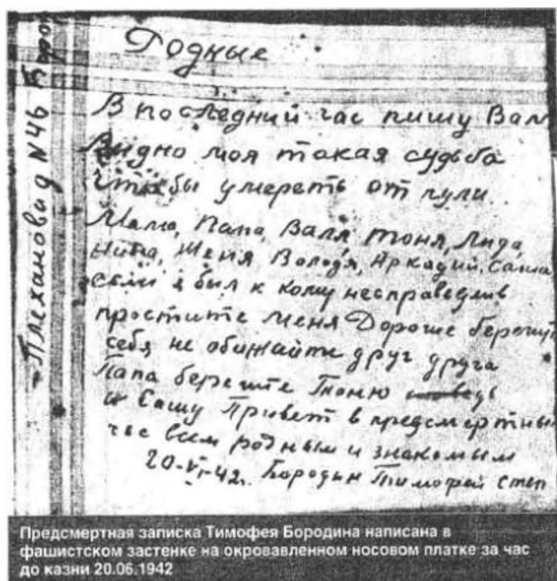 Родные
В последний час пишу Вам
Видно моя такая судьба
чтобы умереть от пули
Мама, Папа, Валя Тоня, Лида,
Нина, Женя Володя, Аркадий, Саша
если я был к кому несправедлив
простите меня Дороже берегите
себя не обижайте друг друга
Папа берегите Тоню
и Сашу Привет в предсмертный
час всем родным и знакомым
20-VI-42г. Бородин Тимофей Степ
Плеханова д N46
Предсмертная записка Тимофея Бородина написана в
фашистском застенке на окровавленном носовом платке за час
до казни 20.06.1942